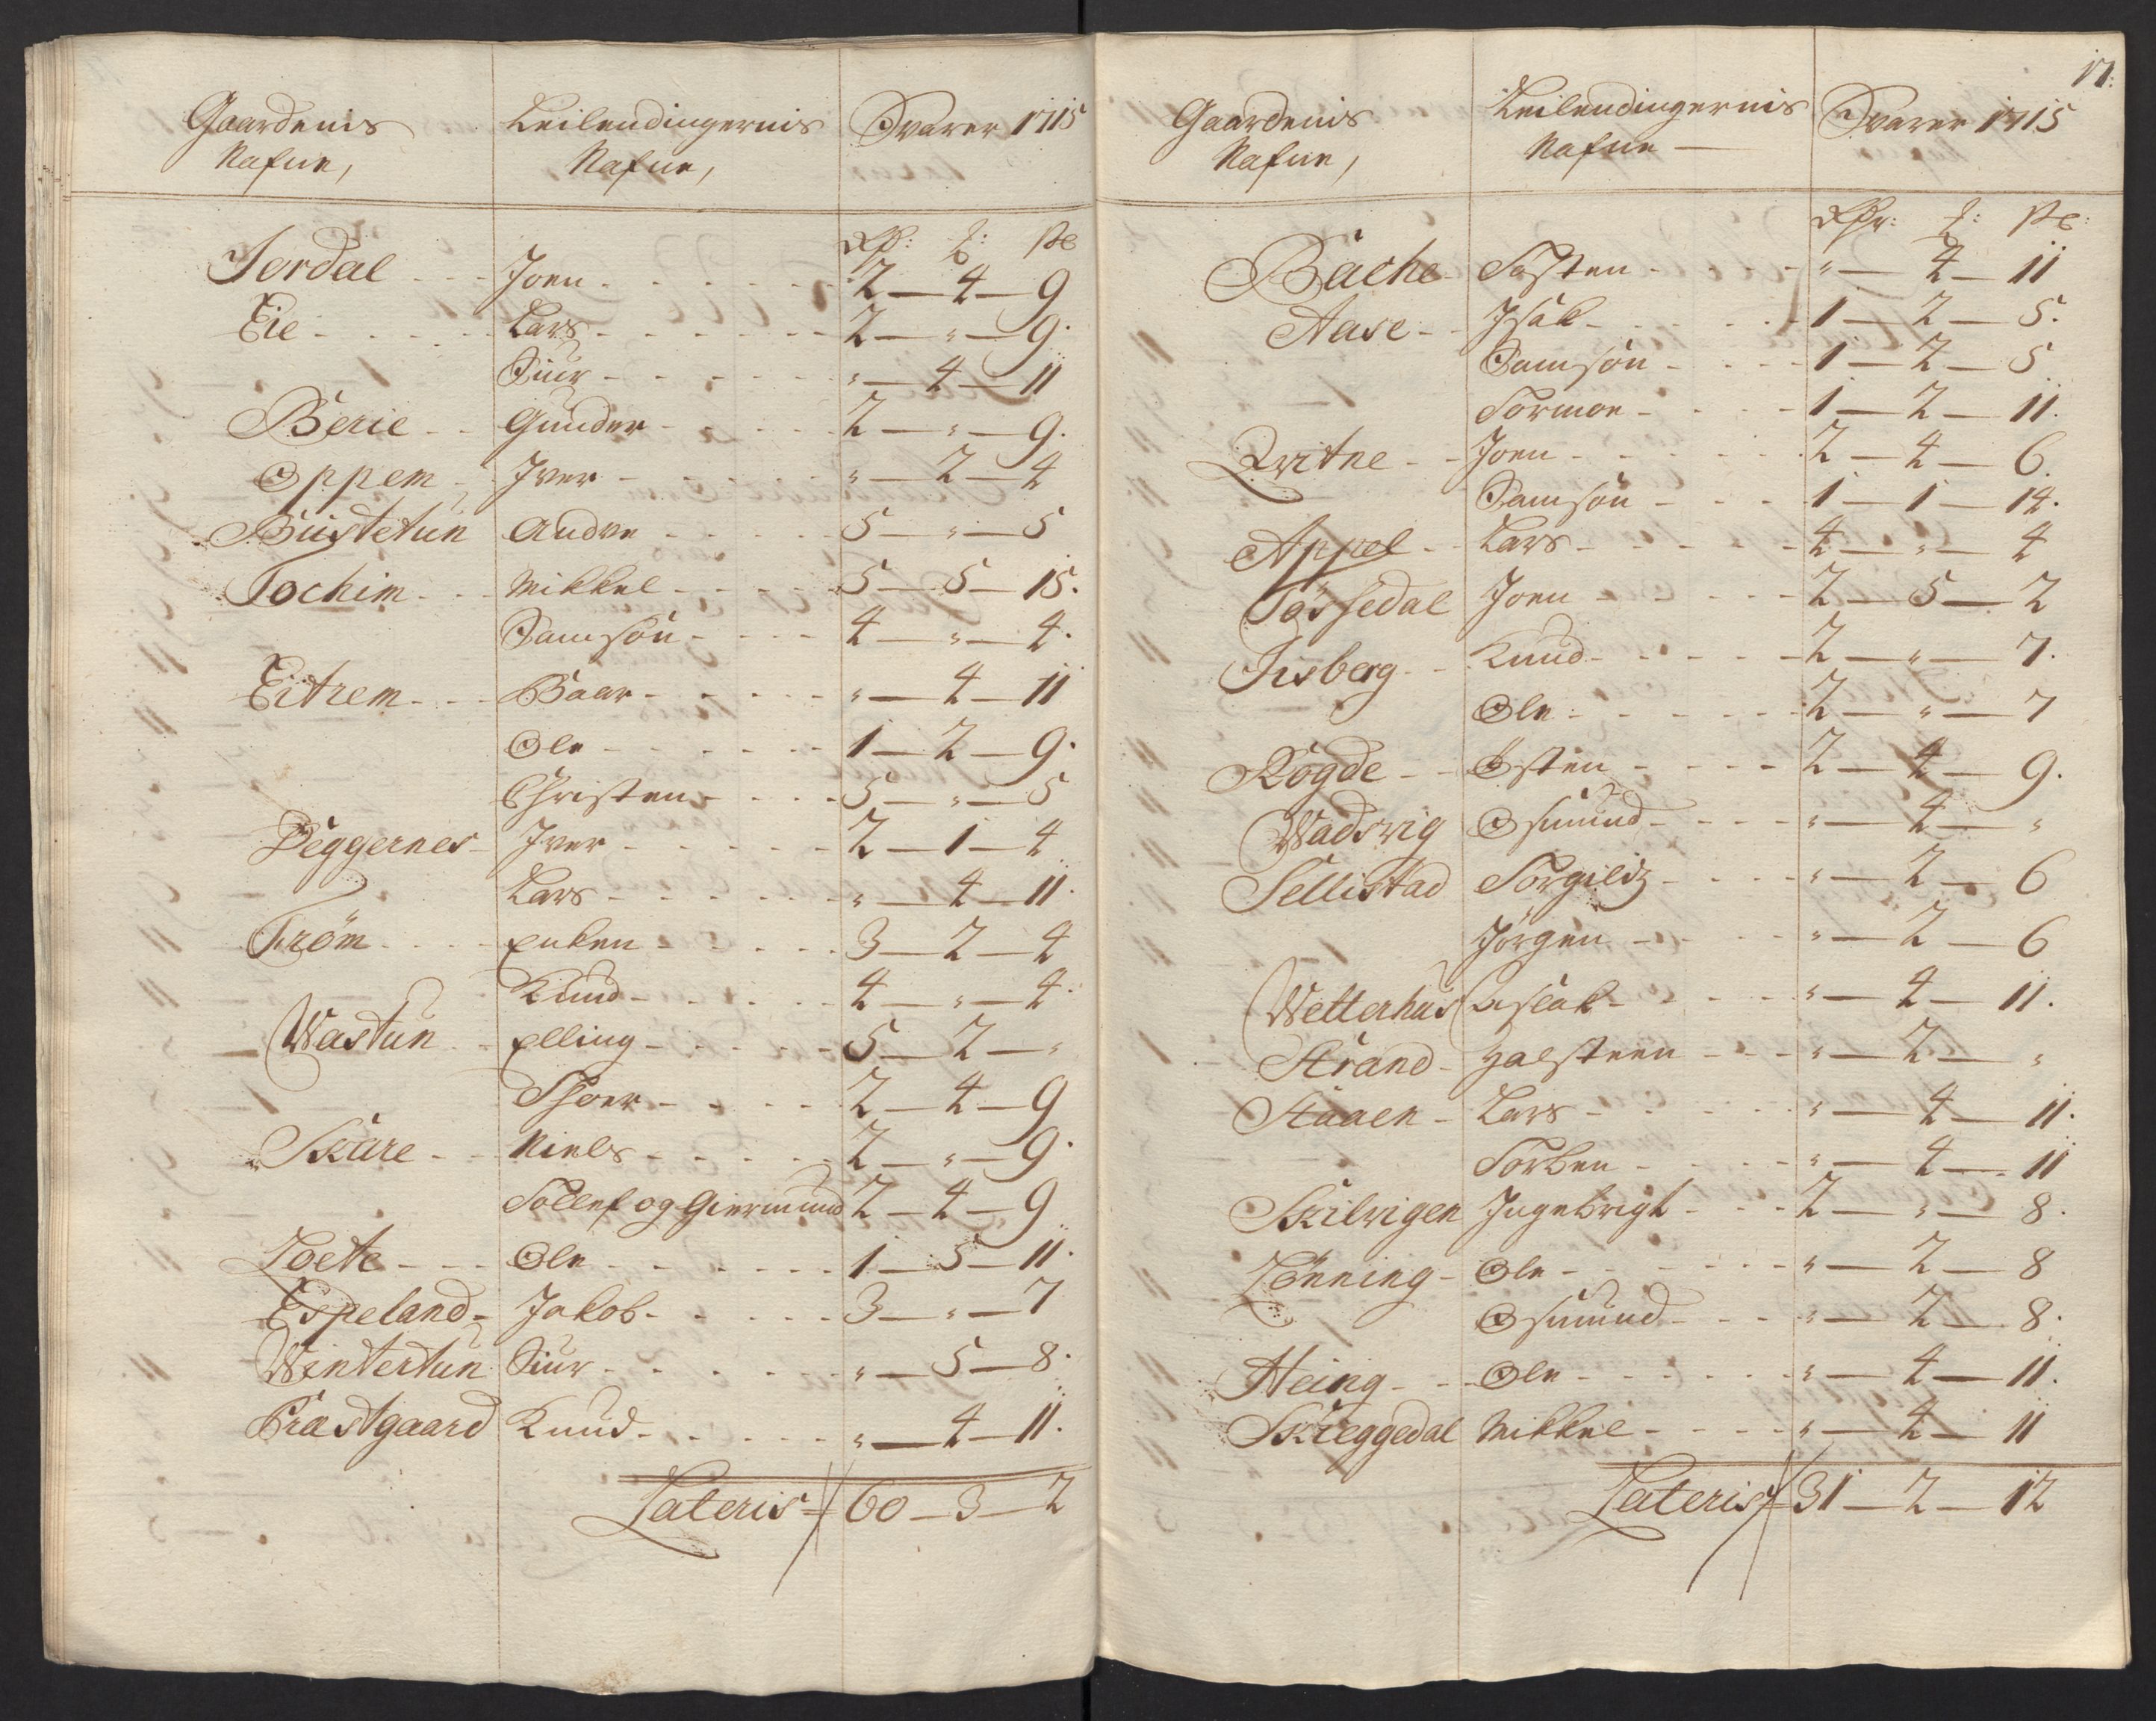 Gaardenis Nafne, Leilendingernis Nafne, Svarer 1715
Rdr: ʒ: s:
Jordal - - - Joen - - - 2 — 4 — 9
Eie - - - Lars - - - 2 — " — 9.
Siur - - - " — 4 — 11
Berie - - Gunder - - - 2 — " — 9.
Oppem - Iver - - - " — 2 — 4
Büstetün Andre - - - 5 — " — 5
Tochim - - Mikkel - - - 5 — 5 — 15.
Samson - - - 4 — " — 4.
Eitrem - - - Baar - - - " — 4 — 11
Ole - - - 1 — 2 — 9.
Christen - - - 5 — " — 5
Deggernes - Iver - - - 2 — 1 — 4
Lars - - - " — 4 — 11.
Tröm - - - Enken - - - 3 — 2 — 4
Knud - - - 4 — " — 4.
Wastün - - Elling - - - 5 — 2 — "
Thoer - - - 2 — 4 — 9
Skäre - - Niels - - - 2 — " — 9.
Tollef og Giermund 2 — 4 — 9
Loete - - - Ole - - - 1 — 5 — 11.
Espeland - Jakob - - - 3 — " — 7
Wintertun Siur - - - " — 5 — 8.
Præstgaard Knud - - - " — 4 — 11.
Lateris 60 — 3 — 2
17:
Gaardenis Nafne, Leilendingernis Nafne — Svarer 1715
Rdr: ʒ: s:
Bache - Tosten - - - " — 4 — 11
Aase - - Isak - - - 1 — 2 — 5.
Samson - - - 1 — 2 — 5
Tormoe - - - 1 — 2 — 11.
Qvitne - - Joen - - - 2 — 4 — 6.
Samson - - - 1 — 1 — 14.
Appel - - Lars - - - 4 — " — 4
Tössedal Joen - - - 2 — 5 — 2
Iisberg - - Knud - - - 2 — " — 7.
Ole - - - 2 — " — 7
Rogde - - Østen - - - 2 — 4 — 9.
Wadsvig Osmund - - - " — 4 — "
Sellistad Torgilds - - - " — 2 — 6
Jörgen - - - " — 2 — 6
Wetterhus Aslak - - - " — 4 — 11.
Strand - Halsteen - - - " — 2 — "
Staaen - Lars - - - " — 4 — 11.
Torben - - - " — 4 — 11
Skilvigen Ingebrigt - - - 2 — " — 8.
Lönning - Ole - - - " — 2 — 8
Osmund - - - " — 2 — 8.
Heing - - Ole - - - " — 4 — 11.
Skieggedal Mikkel - - - " — 4 — 11
Lateris 31 — 2 — 12